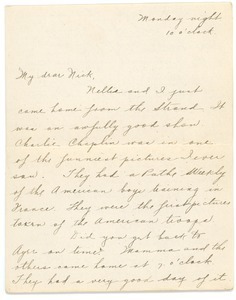 Monday night
10 o'clock.
My dear Nick,
Nellie and I just
came home from the Strand. It
was an awfully good show
Charlie Chaplin was in one
of the funniest pictures I ever
saw. They had a Pathe Weekly
of the American boys training in
France. They were the first pictures
taken of the American troops.
Did you get back to
Ayer on time? Mamma and the
others came home at 7 o'clock
They had a very good day of it